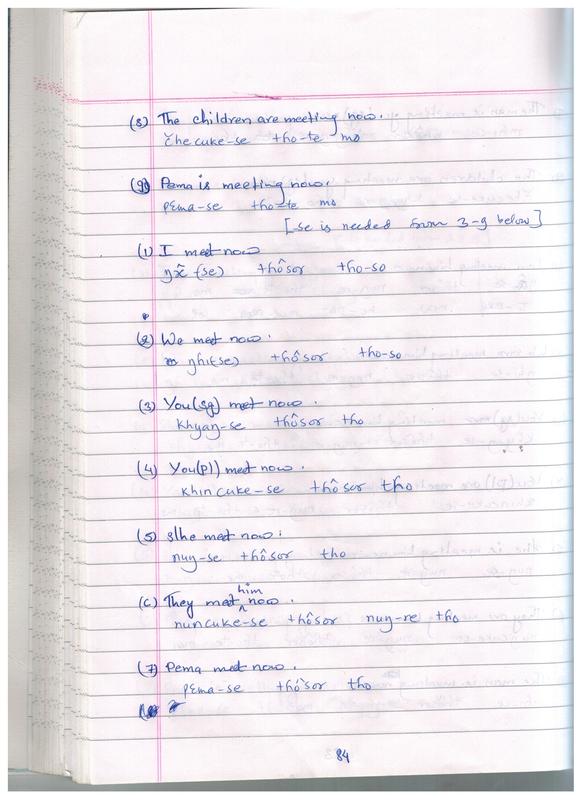 (8) The children are meeting now.
čhecuke-se tho-te mo
(9) Pema is meeting now.
pɛma-se tho-te mo
[se is needed from 3-9 below]
(1) I met now
(se) thôsor tho-so
(2) We met now.
ŋhi(se) thôsor tho-so
(3) You (sg) met now.
khyaŋ-se thôsor tho
(4) You (pl) met now.
khincuke-se thôsor tho
(5) s/he met now.
nuŋ-se thôsor tho
(6) They met him now.
nuncuke-se thôsor nuŋ-re tho
(7) Pema met now.
pɛma-se thôsor tho
84